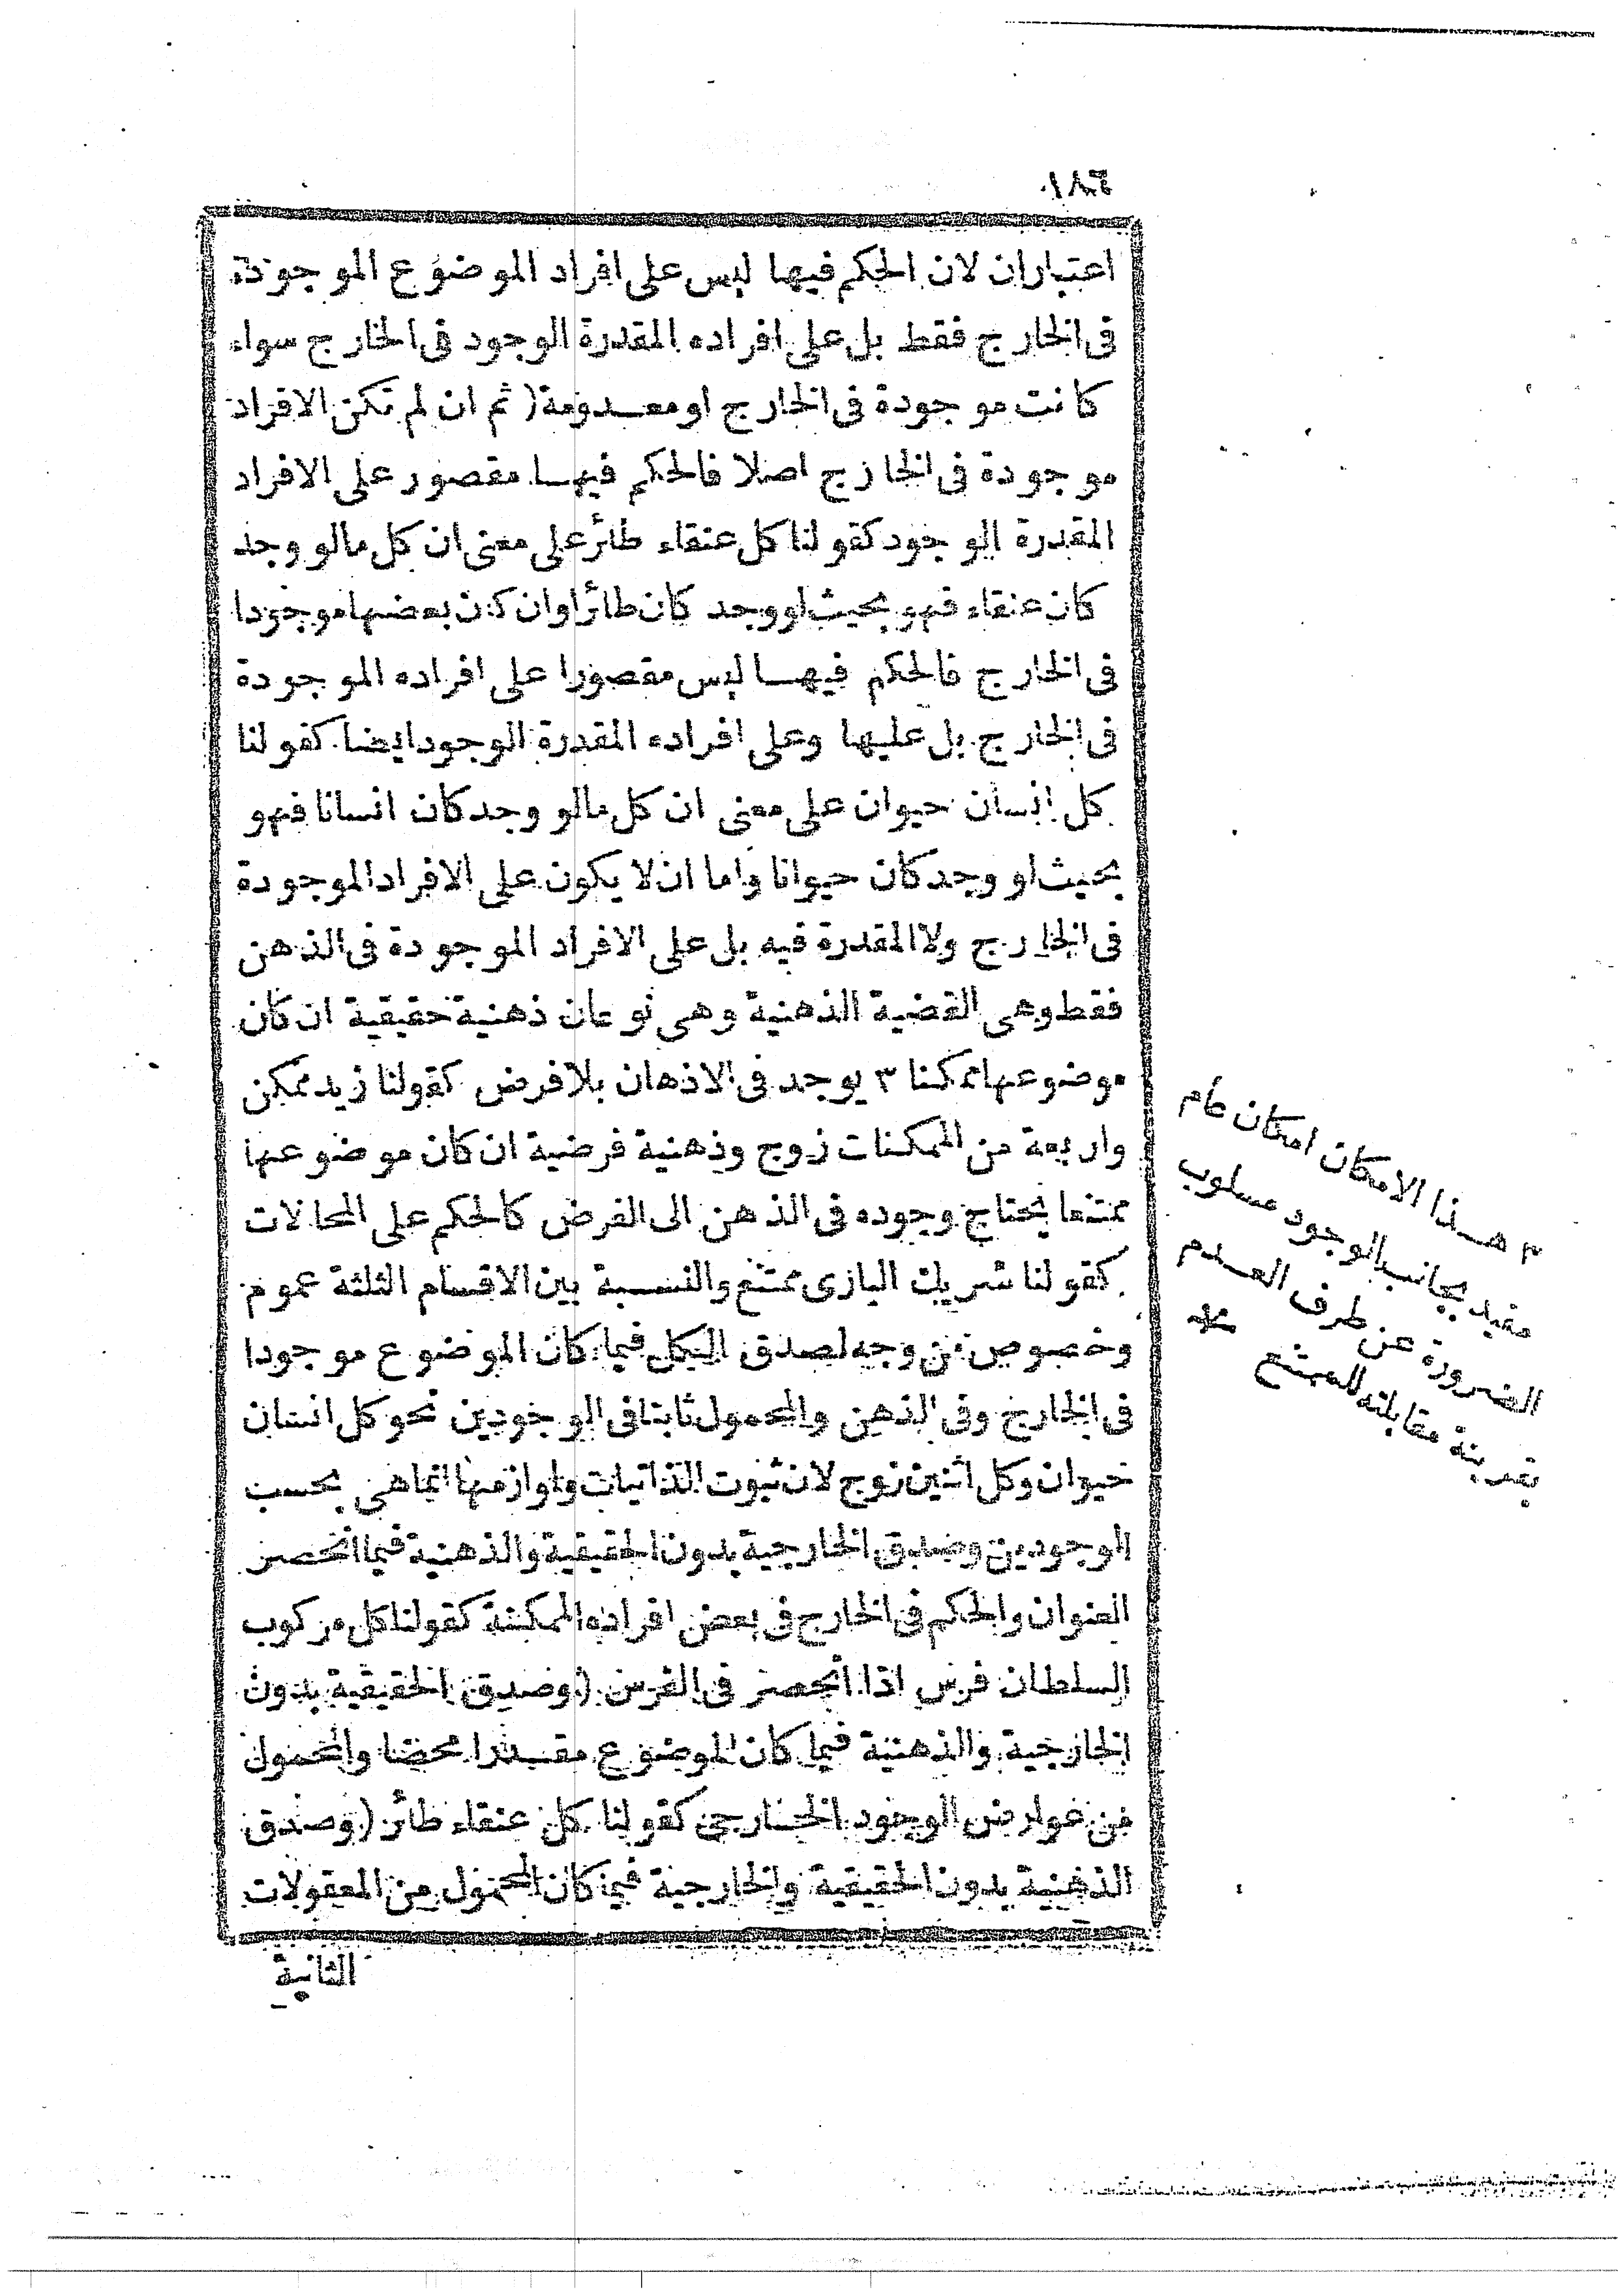 ١٨٤
اعتباران لان الحكم فيها ليس على افراد الموضوع الموجودة
فى الخارج فقط بل على افراده المقدرة الوجود فى الخارج سواء
كانت موجودة فى الخارج او معدومة ( ثم ان لم تكن الافراد
موجودة فى الخارج اصلا فالحكم فيها مقصور على الافراد
المقدرة الوجود كقولنا كل عنقاء طائر على معنى ان كل مالو وجد
كان عنقاء فهو بحيث لو وجد كان طائرا وان كان بعضها موجودا
فى الخارج فالحكم فيها ليس مقصورا على افراده الموجودة
فى الخارج بل عليها وعلى افراده المقدرة الوجود ايضا كقولنا
كل انسان حيوان على معنى ان كل مالو وجد كان انسانا فهو
بحيث لو وجد كان حيوانا واما ان لا يكون على الافراد الموجودة
فى الخارج ولا المقدرة فيه بل على الافراد الموجودة فى الذهن
فقط وهى القضية الذهنية وهى نوعان ذهنية حقيقية ان كان
موضوعها ممكنا ٣ يوجد فى الاذهان بلا فرض كقولنا زيد ممكن
واربعة من الممكنات زوج وذهنية فرضية ان كان موضوعها
ممتنعا يحتاج وجوده فى الذهن الى الفرض كالحكم على المحالات
كقولنا شريك البارى ممتنع والنسبة بين الاقسام الثلثة عموم
وخصوص من وجه لصدق الكل فيما كان الموضوع موجودا
فى الخارج وفى الذهن والمحمول ثابتا فى الوجودين نحو كل انسان
حيوان وكل اثنين زوج لان ثبوت الذاتيات ولوازمها انما هى بحسب
الوجودين وصدق الخارجية بدون الحقيقية والذهنية فيما انحصر
العنوان والحكم فى الخارج فى بعض افراده الممكنة كقولنا كل مركوب
السلطان فرس اذا انحصر فى الفرس ( وصدق الحقيقية بدون
الخارجية والذهنية فيما كان الموضوع مقدرا محضا والمحمول
من عوارض الوجود الخارجى كقولنا كل عنقاء طائر ( وصدق
الذهنية بدون الحقيقية والخارجية فيما كان المحمول من المعقولات
الثانية
٣ هذا الامكان امكان عام
مقيد بجانب الوجود مسلوب
الضرورة عن طرف العدم
بقرينة مقابلته للممتنع